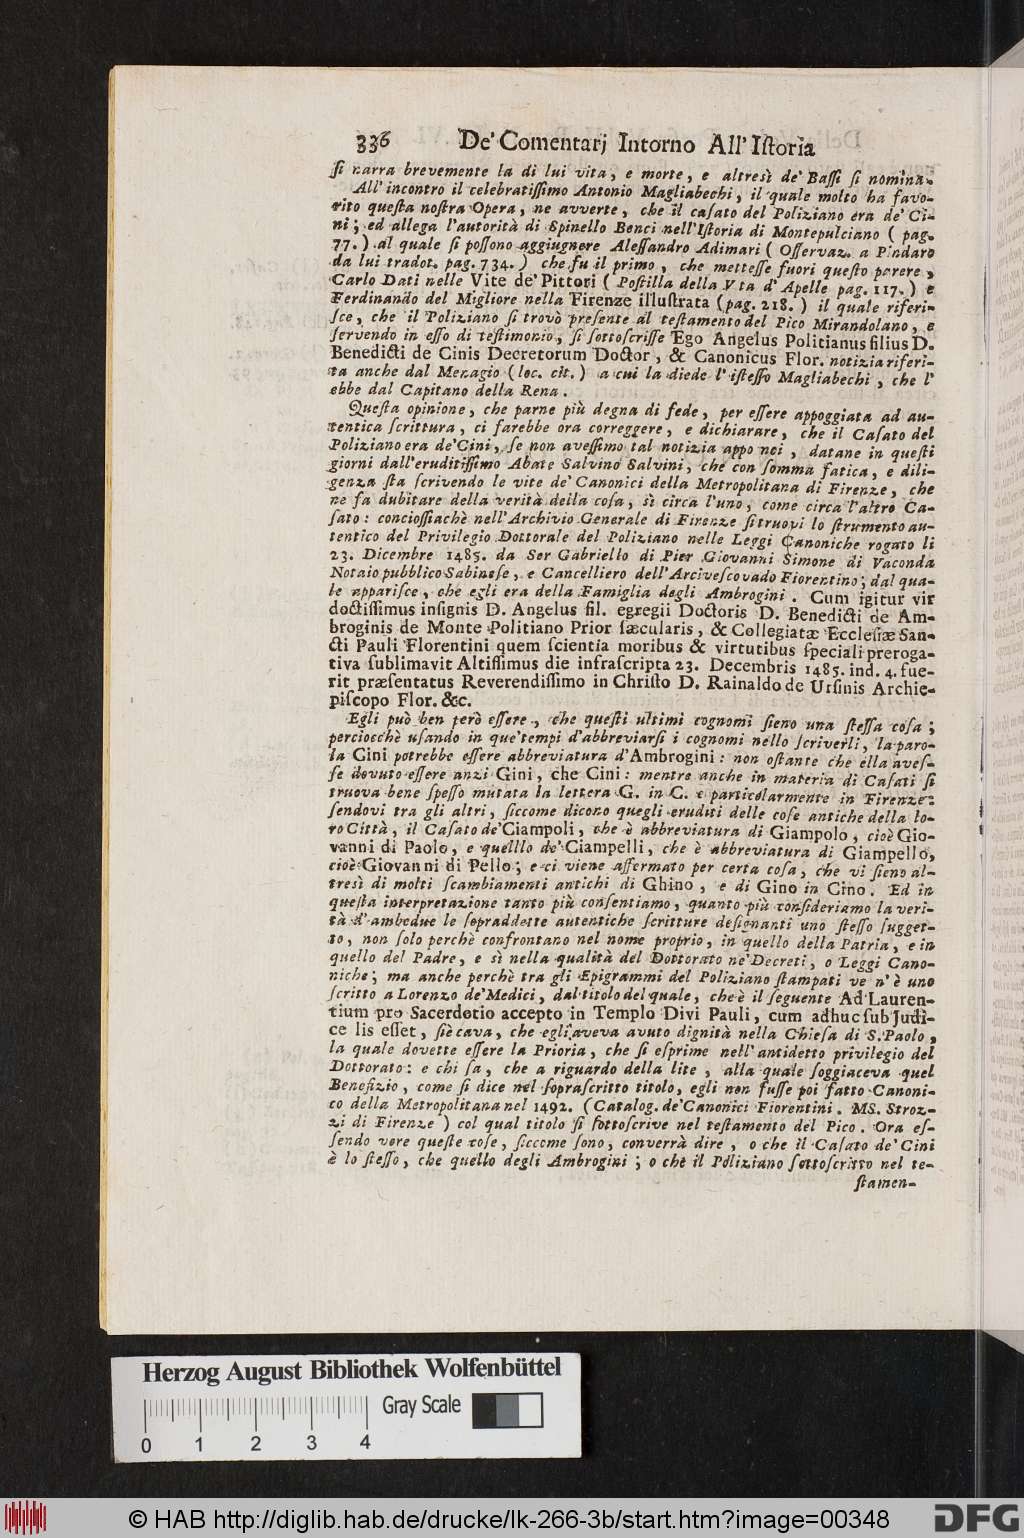 336 De' Comentarj Intorno All' Iſtoria
ſi narra brevemente la di lui vita, e morte, e altresì de' Baſſi ſi nomina.
All' incontro il celebratiſſimo Antonio Magliabechi, il quale molto ha favo-
rito queſta noſtra Opera, ne avverte, che il caſato del Poliziano era de' Ci-
ni; ed allega l'autorità di Spinello Benci nell'Iſtoria di Montepulciano ( pag.
77. ) al quale ſi poſſono aggiugnere Aleſſandro Adimari ( Oſſervaz. a Pindaro
da lui tradot. pag. 734. ) che fu il primo, che metteſſe fuori queſto parere,
Carlo Dati nelle Vite de' Pittori ( Poſtilla della V ta d' Apelle pag. 117. ) e
Ferdinando del Migliore nella Firenze illuſtrata (pag. 218. ) il quale riferi-
ſce, che il Poliziano ſi trovò preſente al teſtamento del Pico Mirandolano, e
ſervendo in eſſo di teſtimonio, ſi ſottoſcriſſe Ego Angelus Politianus filius D.
Benedicti de Cinis Decretorum Doctor, & Canonicus Flor. notizia riferi-
ta anche dal Menagio (loc. cit. ) a cui la diede l' iſteſſo Magliabechi, che l'
ebbe dal Capitano della Rena.
Queſta opinione, che parne più degna di fede, per eſſere appoggiata ad au-
tentica ſcrittura, ci farebbe ora correggere, e dichiarare, che il Caſato del
Poliziano era de'Cini, ſe non aveſſimo tal notizia appo noi, datane in queſti
giorni dall'eruditiſſimo Abate Salvino Salvini, che con ſomma fatica, e dili-
genza ſta ſcrivendo le vite de' Canonici della Metropolitana di Firenze, che
ne fa dubitare della verità della coſa, sì circa l'uno, come circa l'altro Ca-
ſato: concioſſiachè nell'Archivio Generale di Firenze ſi truovi lo ſtrumento au-
tentico del Privilegio Dottorale del Poliziano nelle Leggi Canoniche rogato li
23. Dicembre 1485. da Ser Gabriello di Pier Giovanni Simone di Vaconda
Notaio pubblico Sabineſe, e Cancelliero dell'Arciveſcovado Fiorentino; dal qua-
le appariſce, che egli era della Famiglia degli Ambrogini. Cum igitur vir
doctiſſimus inſignis D. Angelus fil. egregii Doctoris D. Benedicti de Am-
broginis de Monte Politiano Prior ſæcularis, & Collegiatæ Eccleſiæ San-
cti Pauli Florentini quem ſcientia moribus & virtutibus ſpeciali preroga-
tiva ſublimavit Altiſſimus die infraſcripta 23. Decembris 1485. ind. 4. fue-
rit præſentatus Reverendiſſimo in Chriſto D. Rainaldo de Urſinis Archie-
piſcopo Flor. &c.
Egli può ben però eſſere, che queſti ultimi cognomi ſieno una ſteſſa coſa;
perciocchè uſando in que'tempi d'abbreviarſi i cognomi nello ſcriverli, la paro-
la Cini potrebbe eſſere abbreviatura d'Ambrogini: non oſtante che ella aveſ-
ſe dovuto eſſere anzi Gini, che Cini: mentre anche in materia di Caſati ſi
truova bene ſpeſſo mutata la lettera G. in C. e particolarmente in Firenze:
ſendovi tra gli altri, ſiccome dicono quegli eruditi delle coſe antiche della lo-
ro Città, il Caſato de'Ciampoli, che è abbreviatura di Giampolo, cioè Gio-
vanni di Paolo, e quelllo de' Ciampelli, che è abbreviatura di Giampello,
cioè Giovanni di Pello; e ci viene affermato per certa coſa, che vi ſieno al-
tresì di molti ſcambiamenti antichi di Ghino, e di Gino in Cino. Ed in
queſta interpretazione tanto più conſentiamo, quanto più conſideriamo la veri-
tà d'ambedue le ſopraddette autentiche ſcritture deſignanti uno ſteſſo ſugget-
to, non ſolo perchè confrontano nel nome proprio, in quello della Patria, e in
quello del Padre, e sì nella qualità del Dottorato ne'Decreti, o Leggi Cano-
niche; ma anche perchè tra gli Epigrammi del Poliziano ſtampati ve n'è uno
ſcritto a Lorenzo de'Medici, dal titolo del quale, che è il ſeguente Ad Lauren-
tium pro Sacerdotio accepto in Templo Divi Pauli, cum adhuc ſub Judi-
ce lis eſſet, ſi è cava, che egli aveva avuto dignità nella Chieſa di S. Paolo,
la quale dovette eſſere la Prioria, che ſi eſprime nell'antidetto privilegio del
Dottorato: e chi ſa, che a riguardo della lite, alla quale ſoggiaceva quel
Benefizio, come ſi dice nel ſopraſcritto titolo, egli non fuſſe poi fatto Canoni-
co della Metropolitana nel 1492. (Catalog. de'Canonici Fiorentini. MS. Stroz-
zi di Firenze ) col qual titolo ſi ſottoſcrive nel teſtamento del Pico. Ora eſ-
ſendo vere queſte coſe, ſiccome ſono, converrà dire, o che il Caſato de' Cini
è lo ſteſſo, che quello degli Ambrogini; o che il Poliziano ſottoſcritto nel te-
ſtamen-
Herzog August Bibliothek Wolfenbüttel
Gray Scale
0 1 2 3 4
© HAB http://diglib.hab.de/drucke/lk-266-3b/start.htm?image=00348
DFG